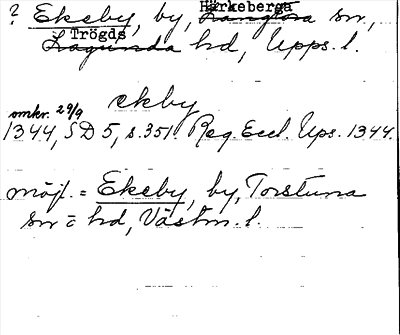 Härkeberga
? Ekeby, by, Långtora sn,
Trögds
Lagunda hd, Upps. l.
ekby
omkr. 29/9
1344, SD 5, s. 351. Reg. Eccl. Ups. 1344.
möjl. = Ekeby, by, Torstuna
sn = hd, Västm. l.